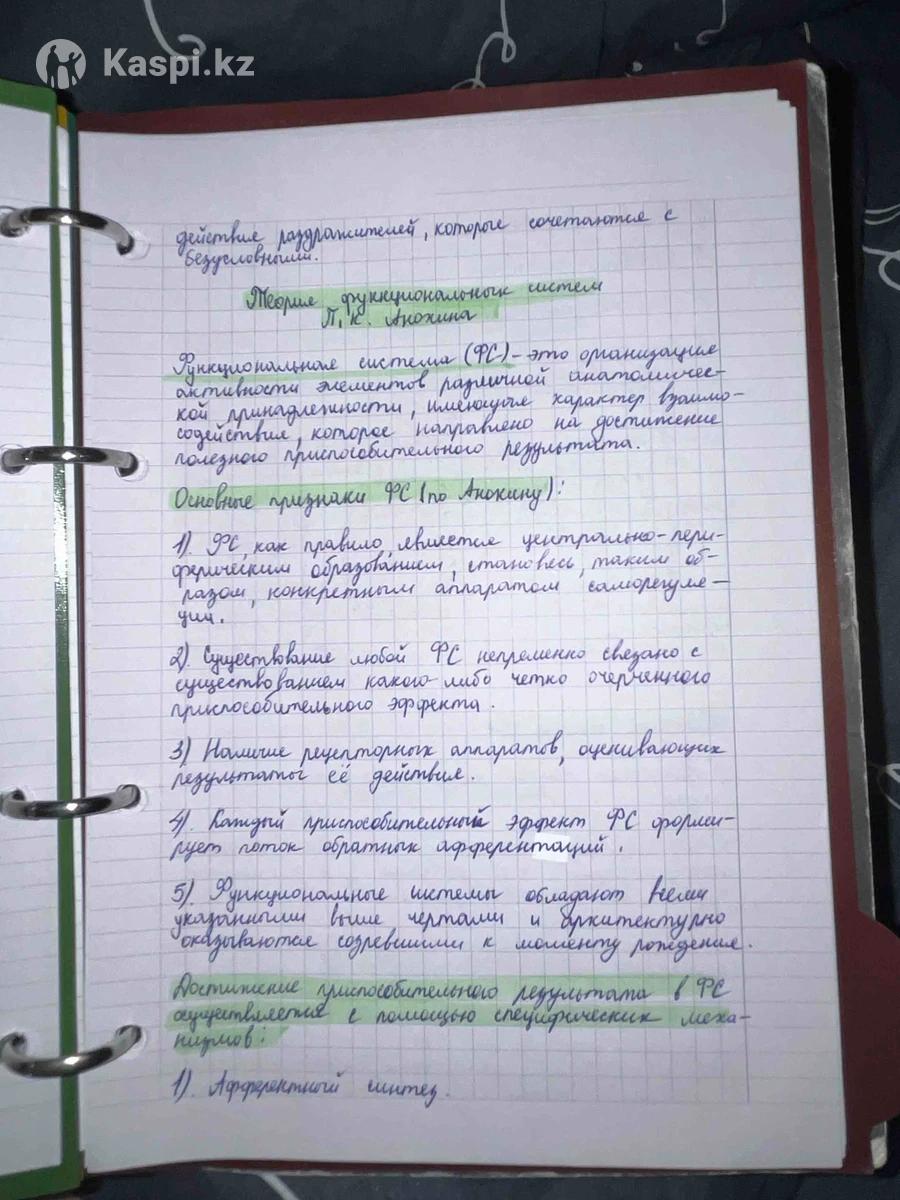 Kaspi.kz
действие раздражителей, которые сочетаются с
безусловными.
Теория функциональных систем
П. К. Анохина
Функциональная система (ФС) - это организация
активности элементов различной анатомичес-
кой принадлежности, имеющая характер взаимо-
содействия, которое направлено на достижение
полезного приспособительного результата.
Основные признаки ФС (по Анохину):
1). ФС, как правило, является центрально-пери-
ферическим образованием, становясь, таким об-
разом, конкретным аппаратом саморегуля-
ции.
2) Существование любой ФС непременно связано с
существованием какого-либо четко очерченного
приспособительного эффекта.
3) Наличие рецепторных аппаратов, оценивающих
результаты её действия.
4). Каждый приспособительный эффект ФС форми-
рует поток обратных афферентаций.
5). Функциональные системы обладают всеми
указанными выше чертами и архитектурно
оказываются созревшими к моменту рождения.
Достижение приспособительного результата в ФС
осуществляется с помощью специфических меха-
низмов:
1). Афферентный синтез.